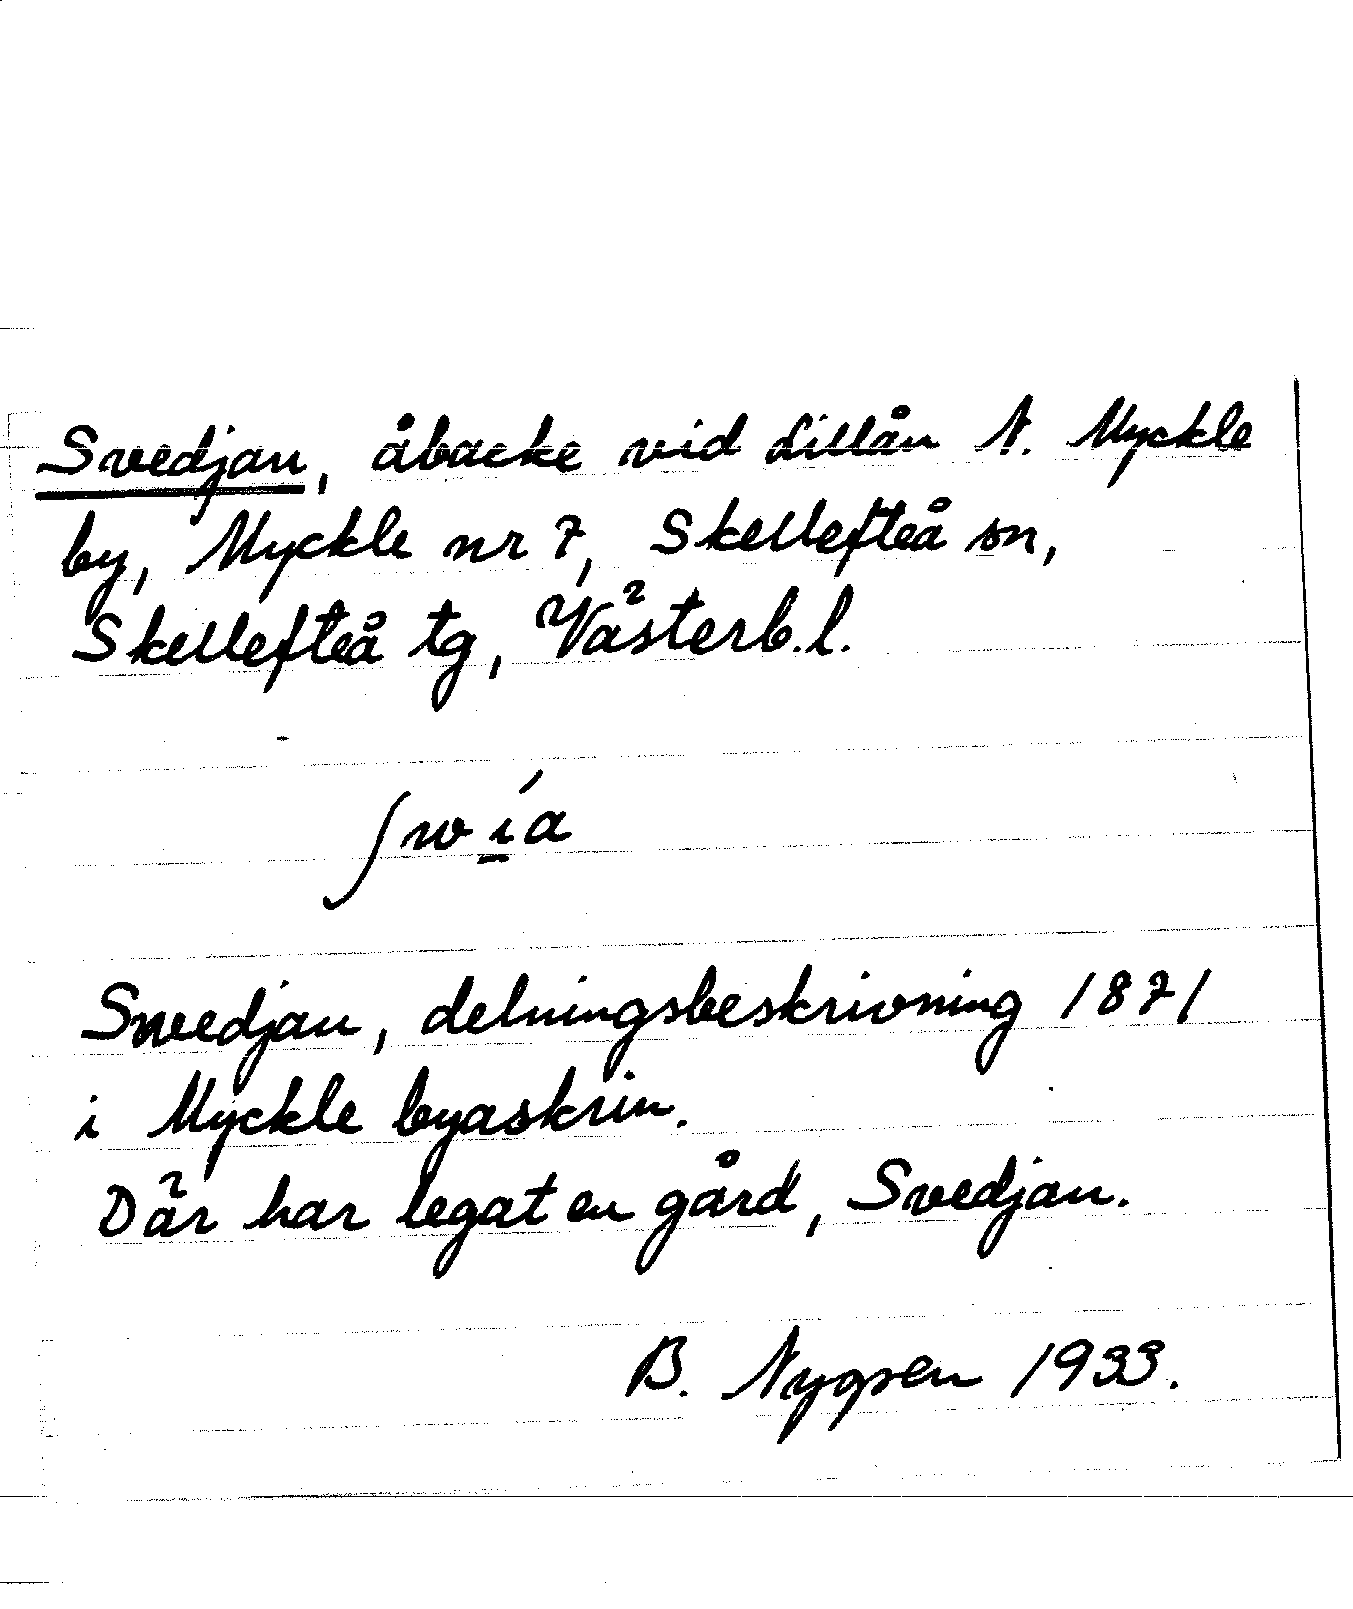 Svedjan, åbacke vid Lillån N. Myckle
by, Myckle nr 7, Skellefteå sn,
Skellefteå tg, Västerb.l.
Svedjan, delningsbeskrivning 1871
i Myckle byaskrin.
Där har legat en gård, Svedjan.
B. Nygren 1933.